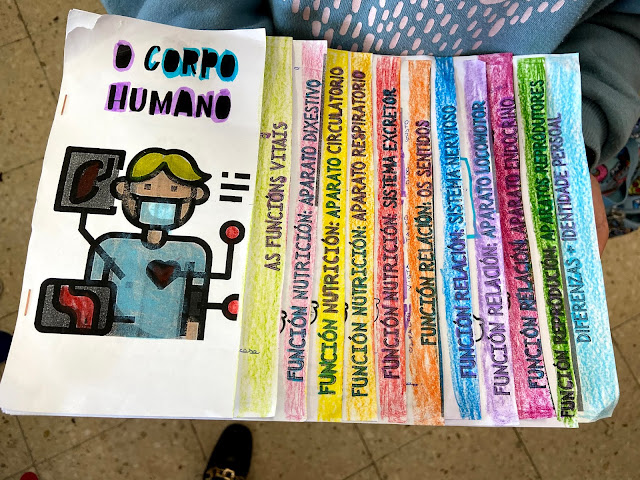 O CORPO
HUMANO
AS FUNCIÓNS VITAIS
FUNCIÓN NUTRICIÓN: APARATO DIXESTIVO
FUNCIÓN NUTRICIÓN: APARATO CIRCULATORIO
FUNCIÓN NUTRICIÓN: APARATO RESPIRATORIO
FUNCIÓN NUTRICIÓN: SISTEMA EXCRETOR
FUNCIÓN RELACIÓN: OS SENTIDOS
FUNCIÓN RELACIÓN: SISTEMA NERVIOSO
FUNCIÓN RELACIÓN: APARATO LOCOMOTOR
FUNCIÓN RELACIÓN: APARATO ENDOCRINO
FUNCIÓN REPRODUCIÓN: APARATOS REPRODUTORES
DIFERENZAS - IDENTIDADE PERSOAL